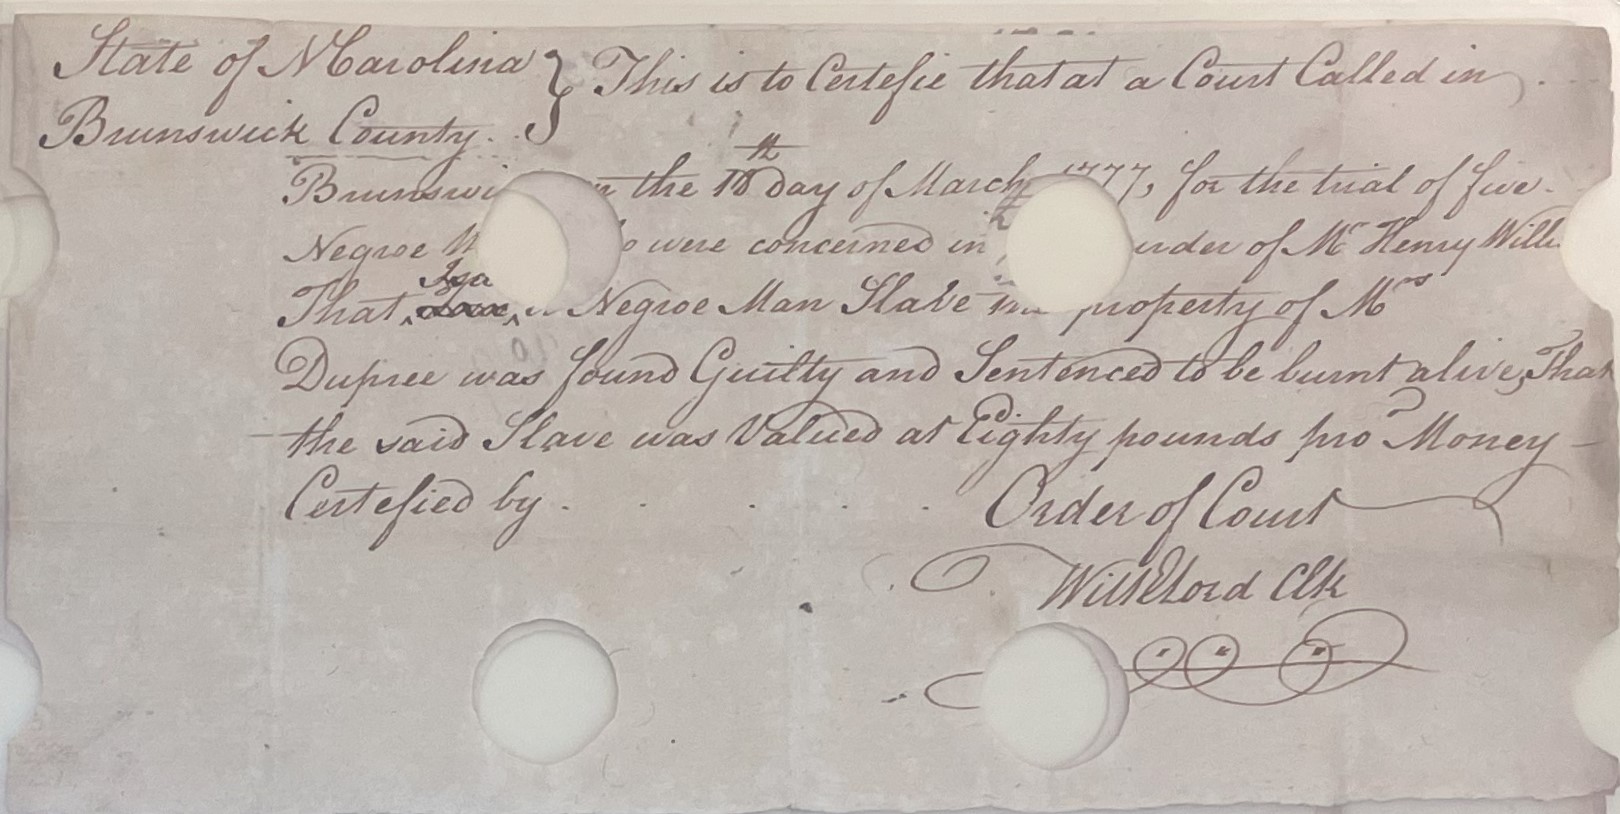 State of NCarolina } This is to Certefie that at a Court Called in
Brunswick County.
Brunswi n the 18th day of March 1777, for the trial of five
Negroe o were concerned in urder of Mr Henry Willi
Isa
That a Negroe Man Slave the property of Mrs
Dupree was found Guilty and Sentenced to be burnt alive, That
the said Slave was Valued at Eighty pounds pro Money
Certefied by . . . . . Order of Court
Will Lord Clk